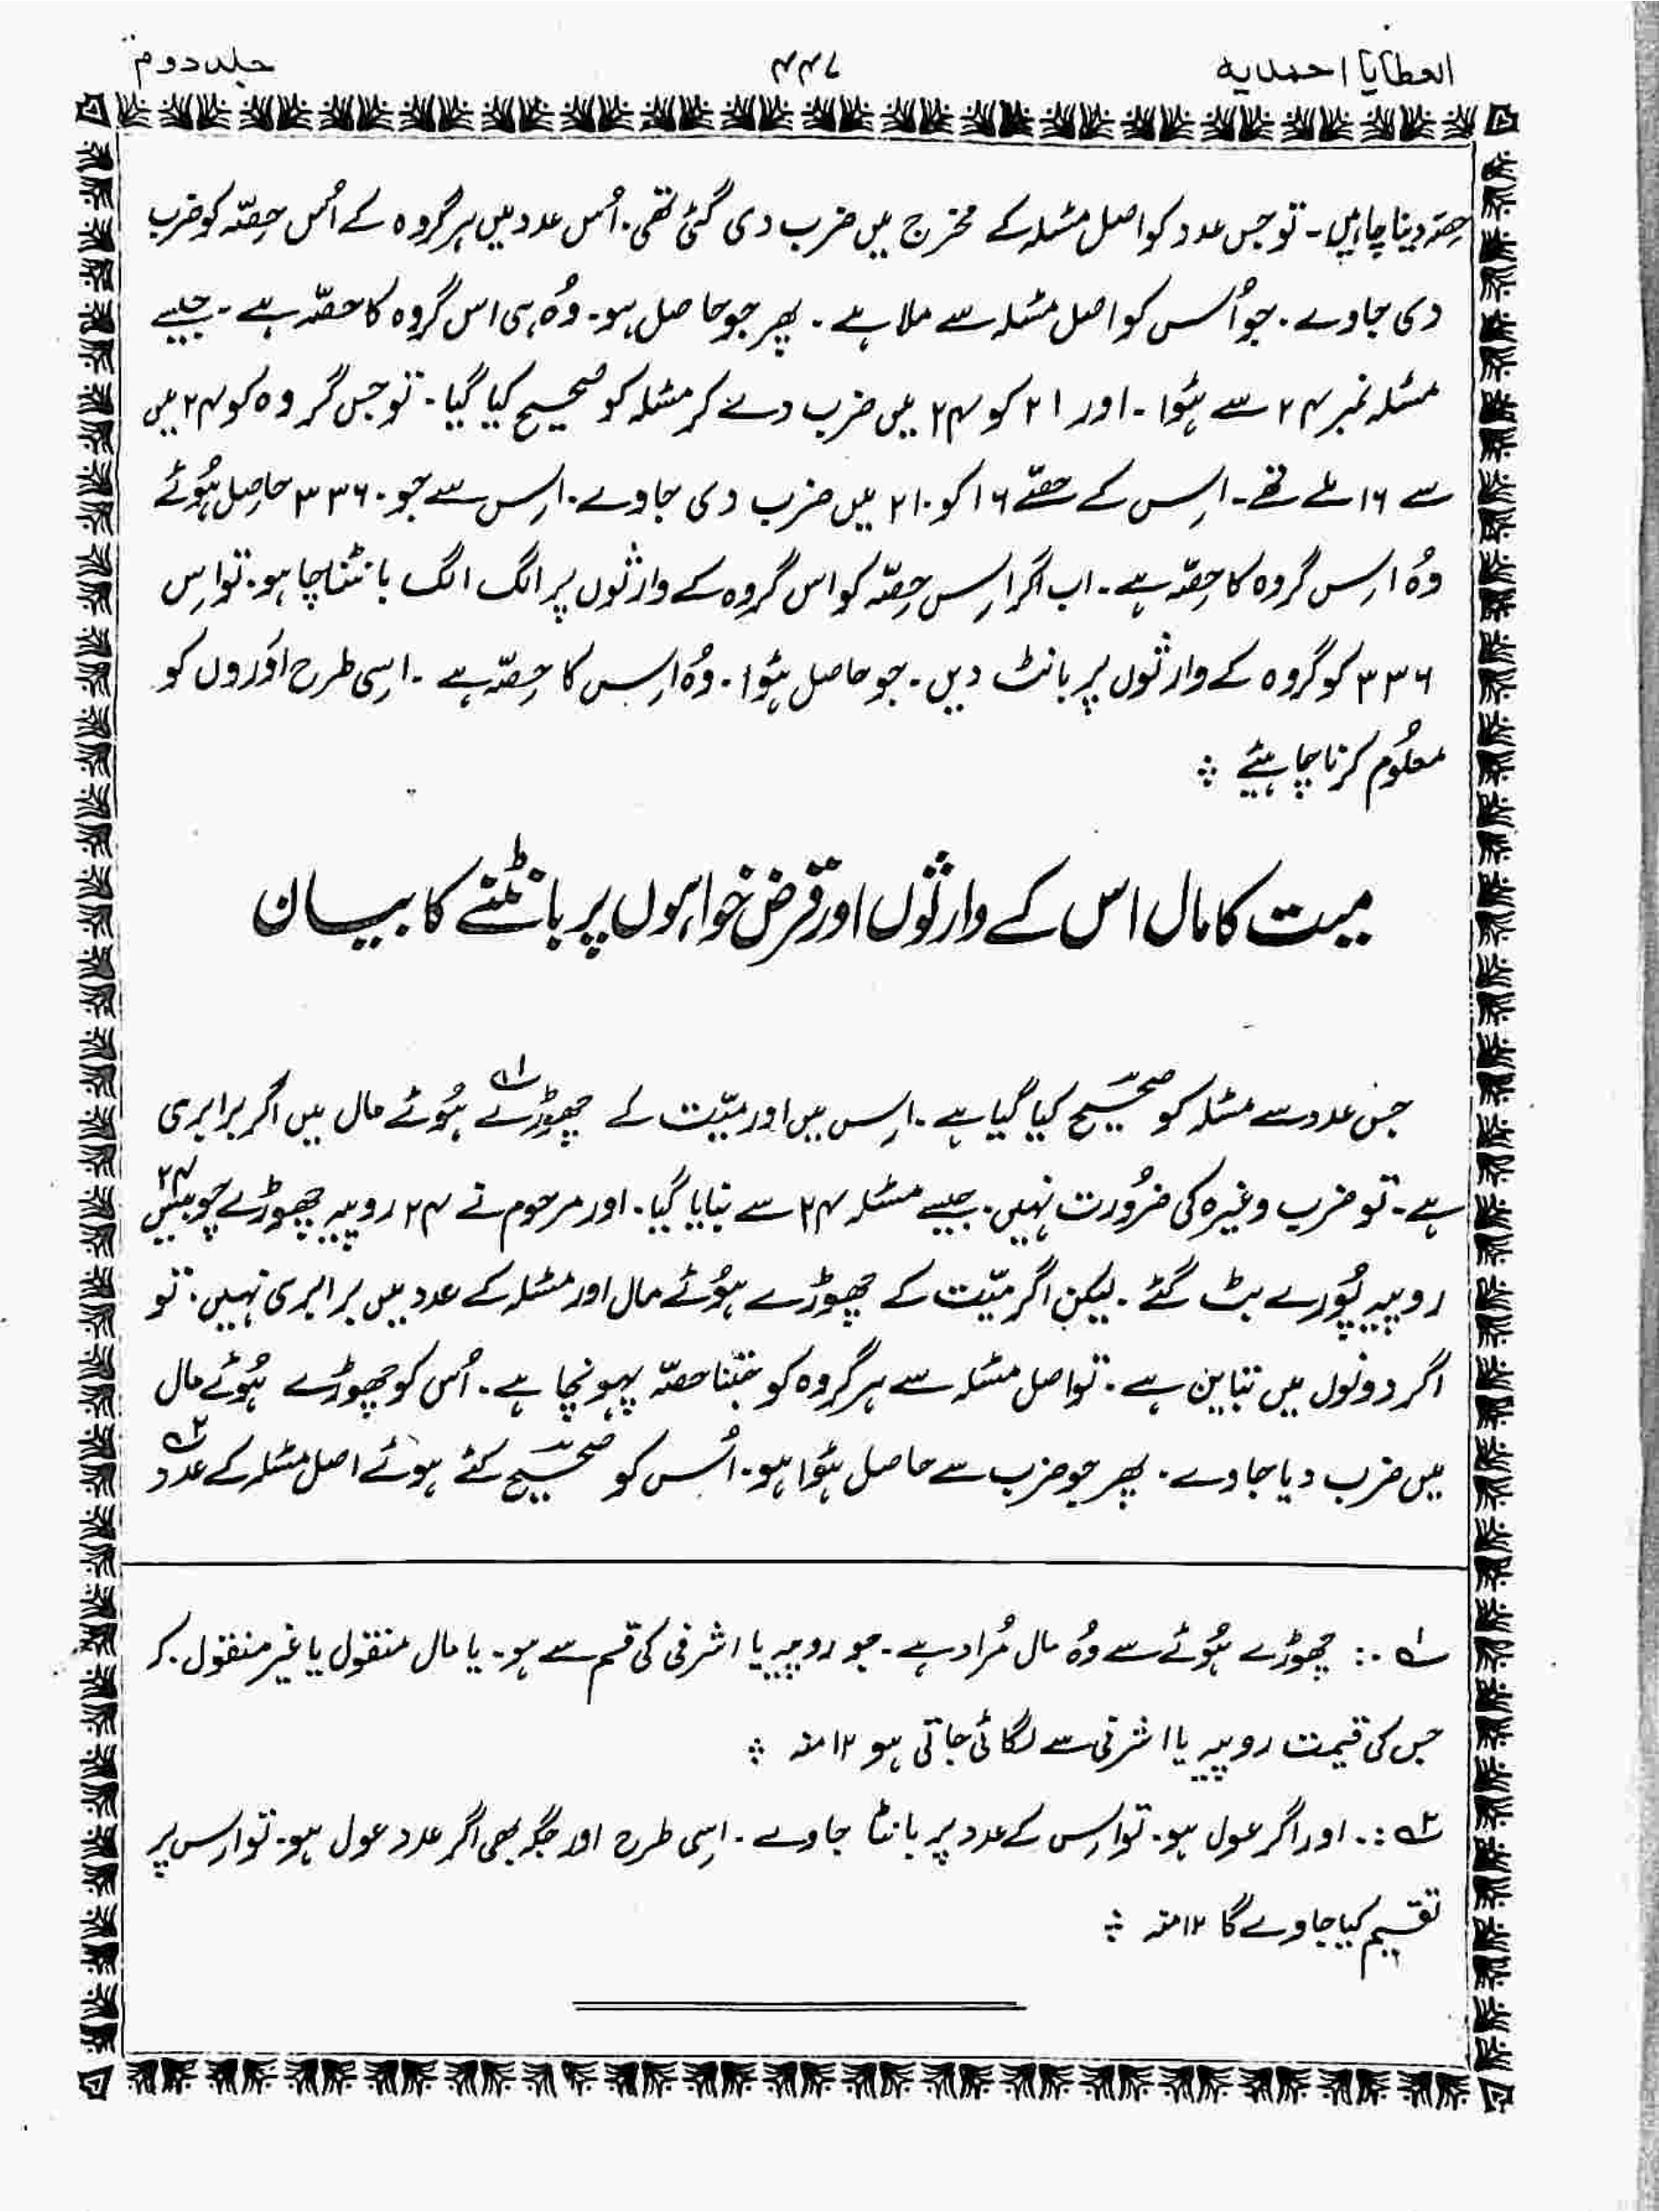 العطایا احمدیه ۴۴۷ جلد دوم
حصّہ دینا چاہیں۔ تو جس عدد کو اصل مسئلہ کے مخرج میں ضرب دی گئی تھی۔ اُس عدد میں ہر گروہ کے اُس حِصّہ کو ضرب
دی جاوے۔ جو اُس کو اصل مسئلہ سے ملا ہے۔ پھر جو حاصل ہو۔ وُہ ہی اس گروہ کا حصّہ ہے۔ جیسے
مسئلہ نمبر ۲۴ سے ہُوا۔ اور ۲۱ کو ۲۴ میں ضرب دے کر مسئلہ کو صحیح کیا گیا۔ تو جس گروہ کو ۲۴ میں
سے ۱۶ ملے تھے۔ اِس کے حصّے ۱۶ کو ۲۱ میں ضرب دی جاوے۔ اِس سے جو ۳۳۶ حاصِل ہُوئے
وُہ اِس گروہ کا حِصّہ ہے۔ اب اگر اِس حِصّہ کو اس گروہ کے وارثوں پر الگ الگ بانٹنا چاہو۔ تو اِس
۳۳۶ کو گروہ کے وارثوں پر بانٹ دیں۔ جو حاصل ہُوا۔ وُہ اِس کا حِصّہ ہے۔ اِسی طرح اَوروں کو
معلُوم کرنا چاہیئے ؞
میت کا مال اس کے وارثوں اور قرض خواہوں پر بانٹنے کا بیان
جس عدد سے مسئلہ کو صحیح کیا گیا ہے۔ اِس میں اور میّت کے چھوڑے ؂۱ ہُوئے مال میں اگر برابری
ہے۔ تو ضرب وغیرہ کی ضرُورت نہیں۔ جیسے مسئلہ ۲۴ سے بنایا گیا۔ اور مرحوم نے ۲۴ روپیہ چھوڑے چوبیس ۲۴
روپیہ پُورے بٹ گئے۔ لیکن اگر میّت کے چھوڑے ہوُئے مال اور مسئلہ کے عدد میں برابری نہیں۔ تو
اگر دونوں میں تباین ہے۔ تو اصل مسئلہ سے ہر گروہ کو جتنا حصّہ پہونچا ہے۔ اُس کو چھوڑے ہُوئے مال
میں ضرب دیا جاوے۔ پھر جو ضرب سے حاصل ہُوا ہو۔ اُس کو صحیح کئے ہوئے اصل مسئلہ کے عدد ؂۲
؂۱ :۔ چھوڑے ہُوئے سے وُہ مال مُراد ہے۔ جو روپیہ یا اشرفی کی قسم سے ہو۔ یا مال منقول یا غیر منقول کہ
جس کی قیمت روپیہ یا اشرفی سے لگائی جاتی ہو ۱۲ منہ ؞
؂۲ :۔ اور اگر عول ہو۔ تو اِس کے عدد پر بانٹا جاوے۔ اِسی طرح اور جگہ بھی اگر عدد عول ہو۔ تو اِس پر
تقسیم کیا جاوے گا ۱۲ منہ ؞